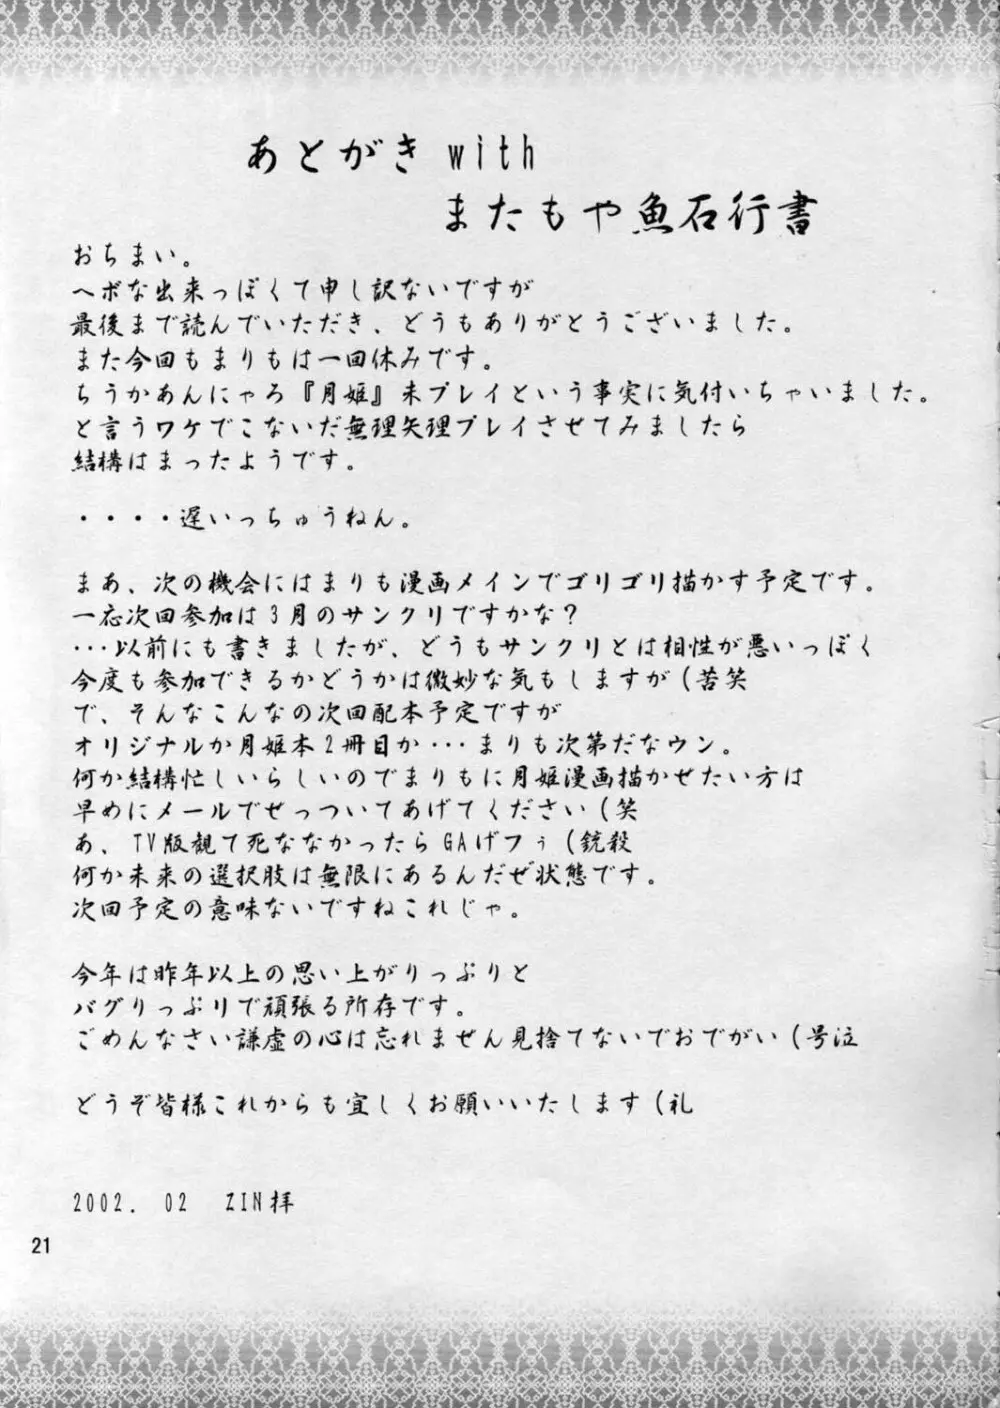 あとがき with
またもや魚石行書
おちまい。
ヘボな出来っぽくて申し訳ないですが
最後まで読んでいただき、どうもありがとうございました。
また今回もまりもは一回休みです。
ちうかあんにゃろ『月姫』未プレイという事実に気付いちゃいました。
と言うワケでこないだ無理矢理プレイさせてみましたら
結構はまったようです。
・・・・遅いっちゅうねん。
まあ、次の機会にはまりも漫画メインでゴリゴリ描かす予定です。
一応次回参加は3月のサンクリですかな？
･･･以前にも書きましたが、どうもサンクリとは相性が悪いっぽく
今度も参加できるかどうかは微妙な気もしますが（苦笑
で、そんなこんなの次回配本予定ですが
オリジナルか月姫本2冊目か･･･まりも次第だなウン。
何か結構忙しいらしいのでまりもに月姫漫画描かせたい方は
早めにメールでせっついてあげてください（笑
あ、TV版観て死ななかったらGAげフぅ（銃殺
何か未来の選択肢は無限にあるんだぜ状態です。
次回予定の意味ないですねこれじゃ。
今年は昨年以上の思い上がりっぷりと
バグりっぷりで頑張る所存です。
ごめんなさい謙虚の心は忘れません見捨てないでおでがい（号泣
どうぞ皆様これからも宜しくお願いいたします（礼
2002. 02 ZIN拝
21